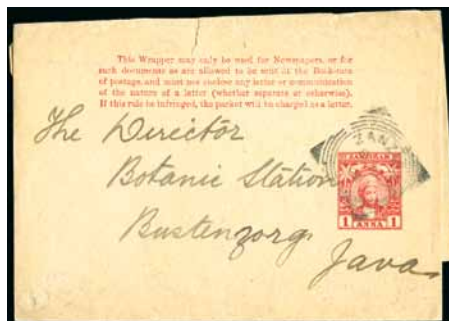 This Wrapper may only be used for Newspapers, or for
such documents as are allowed to be sent at the Book-rate
of postage, and must not enclose any letter or communication
of the nature of a letter (whether separate or otherwise).
If this rule be infringed, the packet will be charged as a letter.
The Director
ZANZ
ZANZIBAR
Botanic Station
1 ANNA 1
Bustenzorg
Java